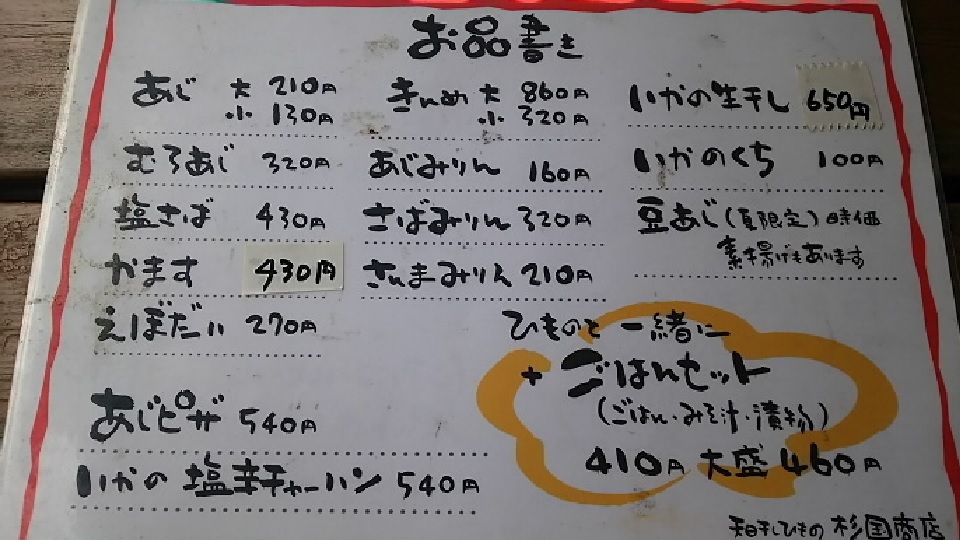 お品書き
あじ 大 210円
小 130円
むろあじ 320円
塩さば 430円
かます 430円
えぼだい 270円
あじピザ 540円
いかの塩辛チャーハン 540円
きんめ 大 860円
小 320円
あじみりん 160円
さばみりん 320円
さんまみりん 210円
いかの生干し 650円
いかのくち 100円
豆あじ(夏限定)時価
素揚げもあります
ひものと一緒に
+ ごはんセット
(ごはん・みそ汁・漬物)
410円 大盛 460円
天日干しひもの 杉国商店